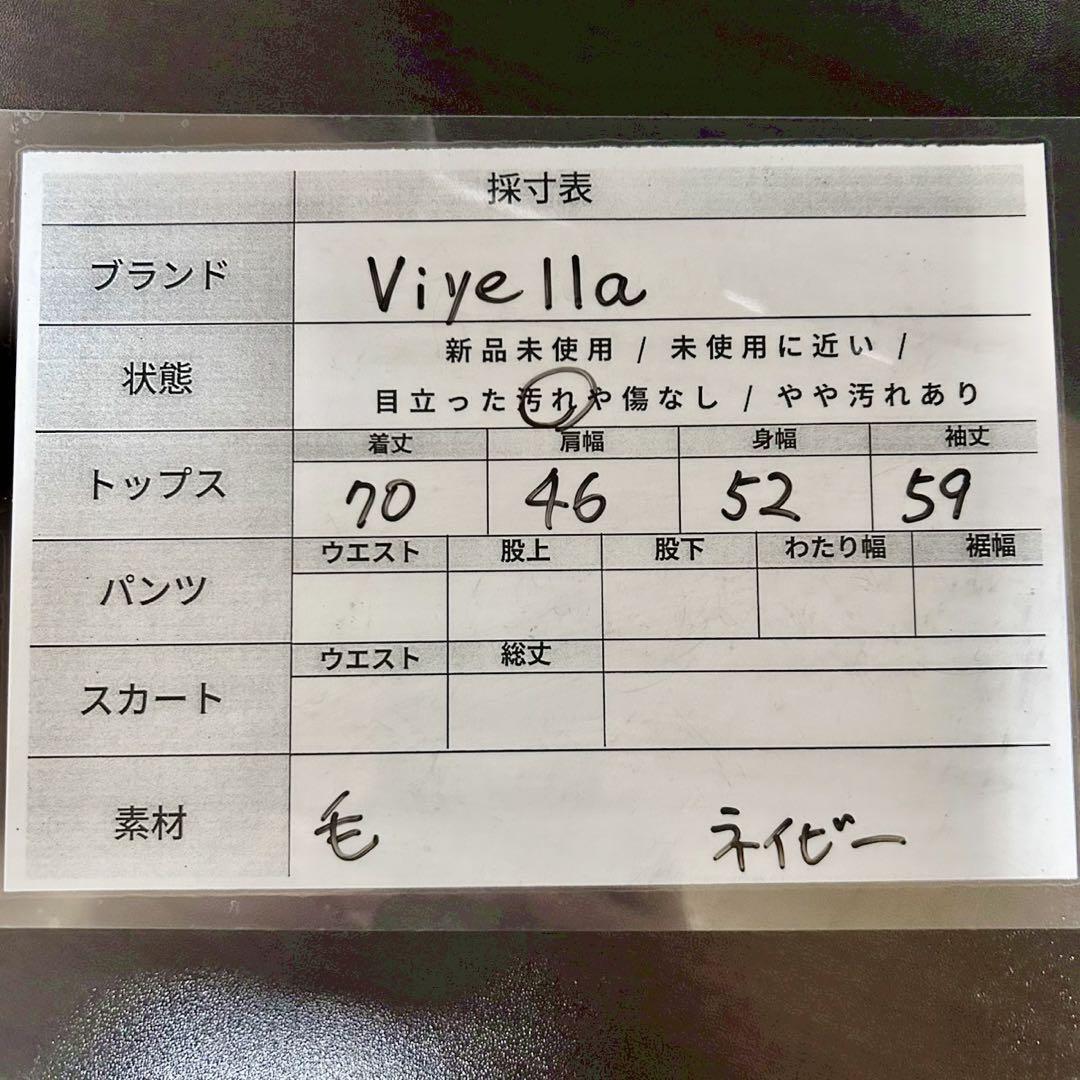 採寸表
ブランド Viyella
状態 新品未使用 / 未使用に近い /
目立った汚れや傷なし / やや汚れあり
トップス 着丈 肩幅 身幅 袖丈
70 46 52 59
パンツ ウエスト 股上 股下 わたり幅 裾幅
スカート ウエスト 総丈
素材 毛 ネイビー